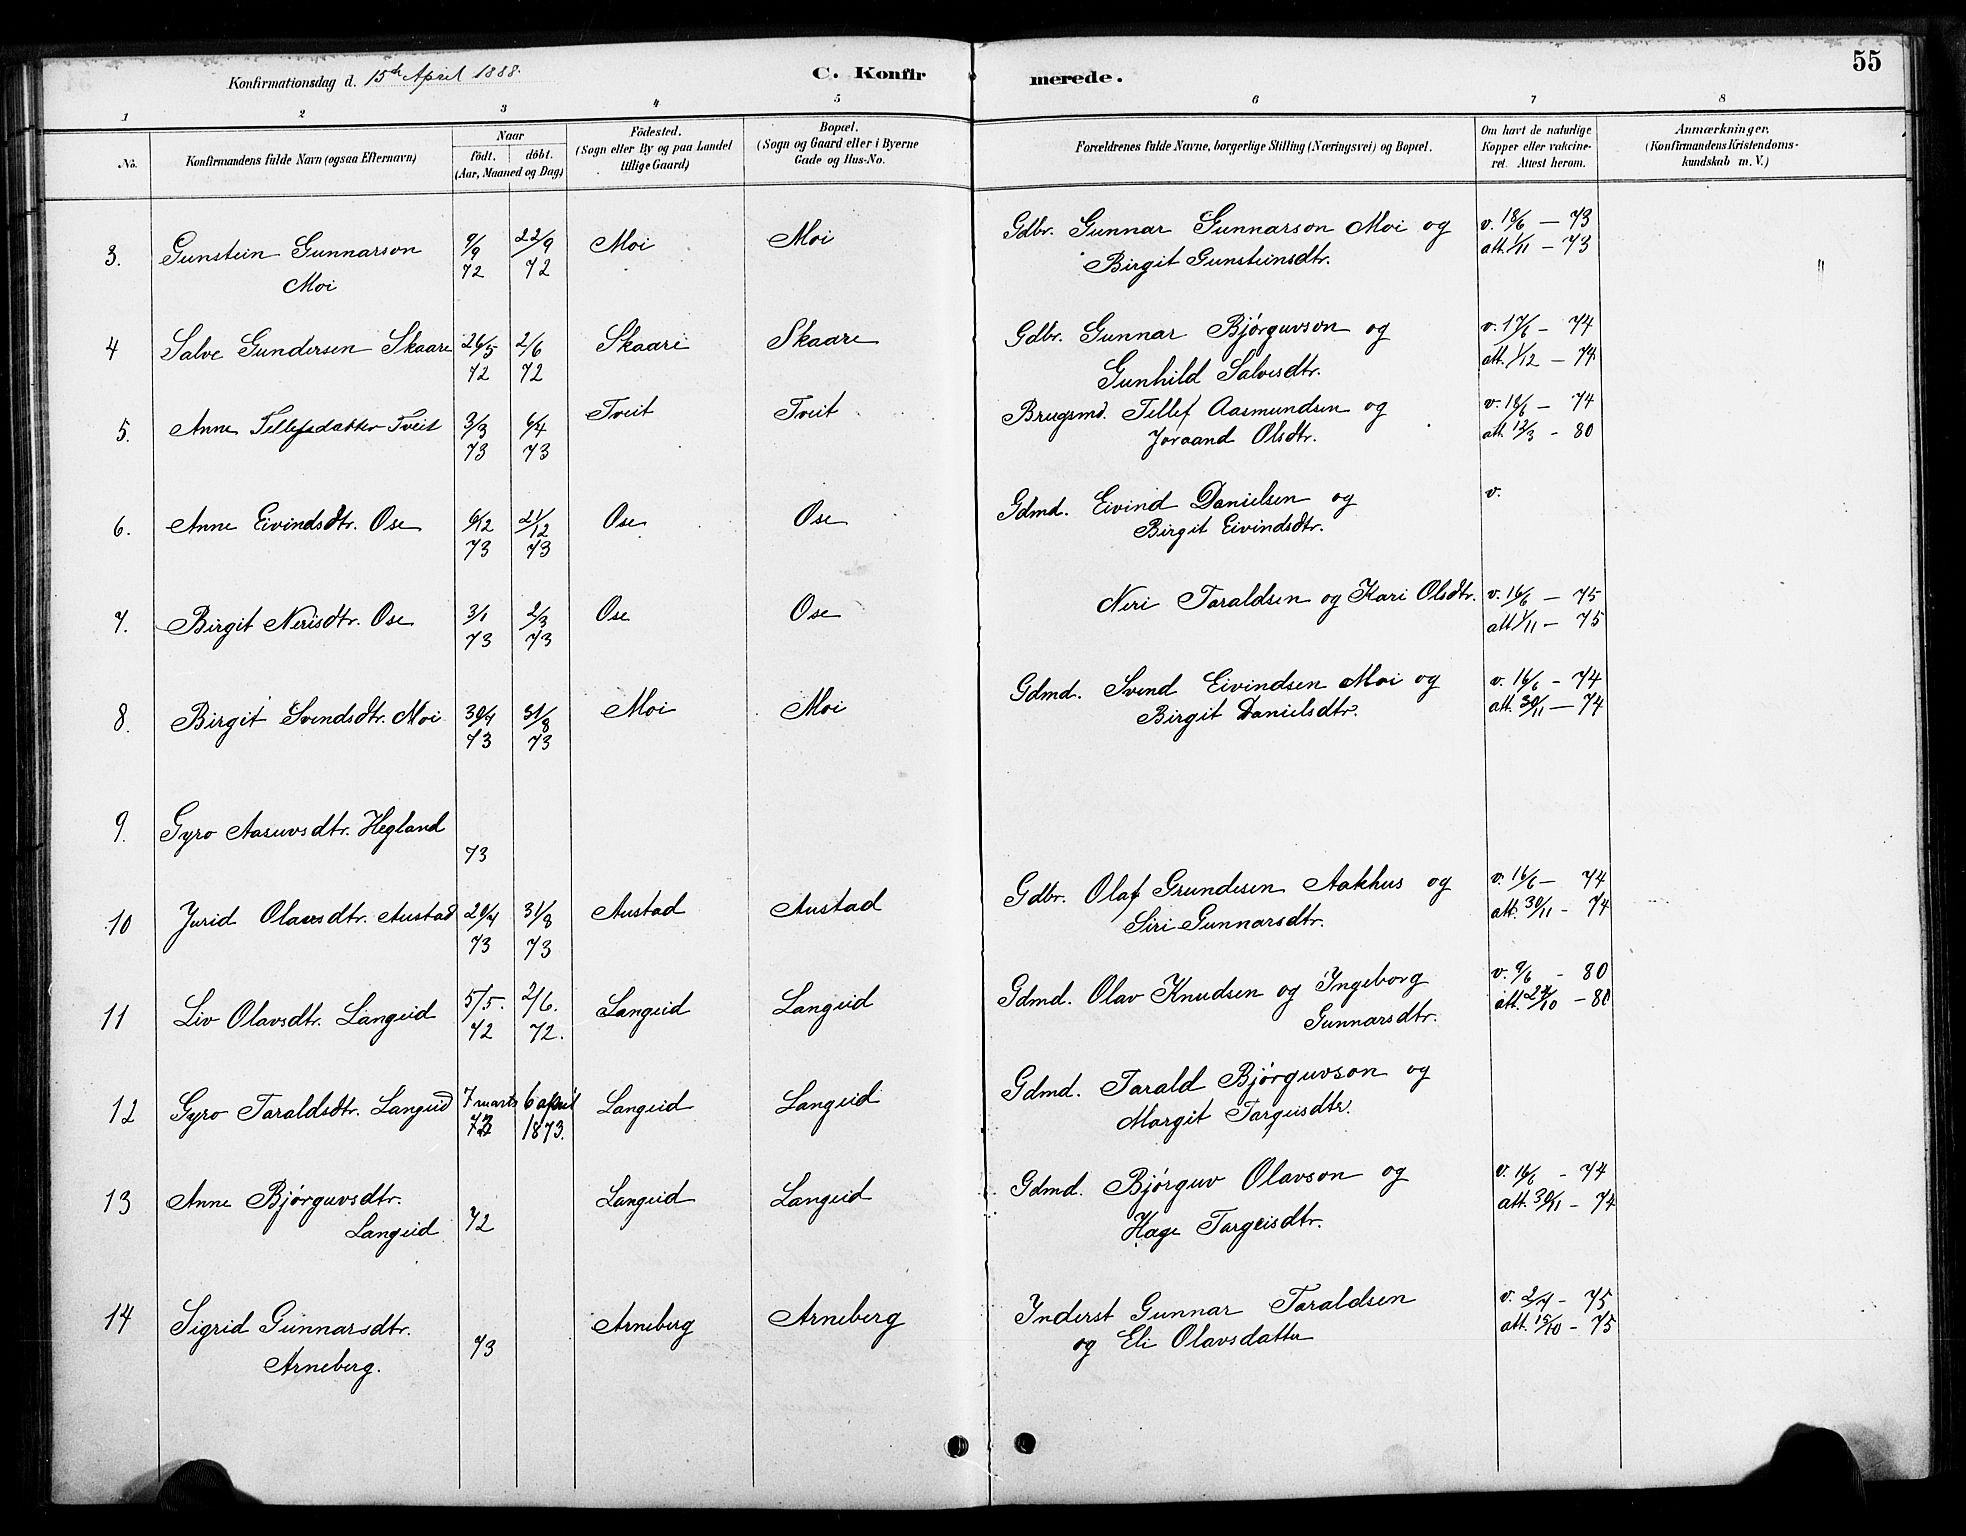 55
Konfirmationsdag d. 15de April 1888.
C. Konfirmerede.
1 2 3 4 5 6 7 8
No.
Konfirmandens fulde Navn (ogsaa Efternavn)
Naar
födt. döbt.
(Aar, Maaned og Dag)
Födested.
(Sogn eller By og paa Landet
tillige Gaard)
Bopæl.
(Sogn og Gaard eller i Byerne
Gade og Hus-No.
Forældrenes fulde Navne, borgerlige Stilling (Næringsvei) og Bopæl.
Om havt de naturlige
Kopper eller vakcine-
ret. Attest herom.
Anmærkninger.
(Konfirmandens Kristendoms-
kundskab m. V.)
3. Gunstein Gunnarson 9/9 22/9 Moi Moi Gdbr. Gunnar Gunnarson Moi og v. 18/6 — 73
Moi 72 72 Birgit Gunsteinsdtr. att. 1/11 — 73
4 Salve Gundersen Skaare 26/5 2/6 Skaare Skaare Gdbr. Gunnar Bjørguvson og v. 17/6 — 74
72 72 Gunhild Salvesdtr. att. 1/12 — 74
5. Anne Tellefsdatter Tveit 3/3 6/4 Tveit Tveit Brugsmd. Tellef Aasmundsen og v. 18/6 — 74
73 73 Joraand Olsdtr. att. 12/3 - 80
6. Anne Eivindsdtr. Ose 6/12 21/12 Ose Ose Gdmd. Eivind Danielsen og v.
73 73 Birgit Eivindsdtr.
7. Birgit Nerisdtr. Ose 3/1 2/3 Ose Ose Neri Taraldsen og Kari Olsdtr. v. 16/6 — 75
73 73 att. 1/11 — 75
8. Birgit Svendsdtr. Moi 30/7 31/8 Moi Moi Gdmd. Svend Eivindsen Moi og v. 16/6 - 74
73 73 Birgit Danielsdtr. att. 30/11 — 74
9. Gyro Aasuvsdtr. Hegland
73
10 Jurid Olavsdtr. Austad 20/7 31/8 Austad Austad Gdbr. Olaf Grundesen Aakhus og v. 16/6 — 74
73 73 Siri Gunnarsdtr. att. 30/11 - 74
11 Liv Olavsdtr. Langeid 5/5. 2/6. Langeid Langeid Gdmd. Olav Knudsen og Ingeborg v. 9/6 - 80
72 72. Gunnarsdtr. att. 27/10 - 80
12 Gyro Taraldsdtr. Langeid 7 marts 6 april Langeid Langeid Gdmd. Tarald Bjørguvson og
73 1873. Margit Targeisdtr.
13 Anne Bjørguvsdtr. Langeid Langeid Gdmd. Bjørguv Olavson og v. 16/6 - 74
Langeid 72 Hage Targeisdtr. att. 30/11 - 74
14 Sigrid Gunnarsdtr. Arneberg Arneberg Inderst Gunnar Taraldsen v. 2/7 - 75
Arneberg. 73 og Eli Olavsdatter att. 15/10 - 75